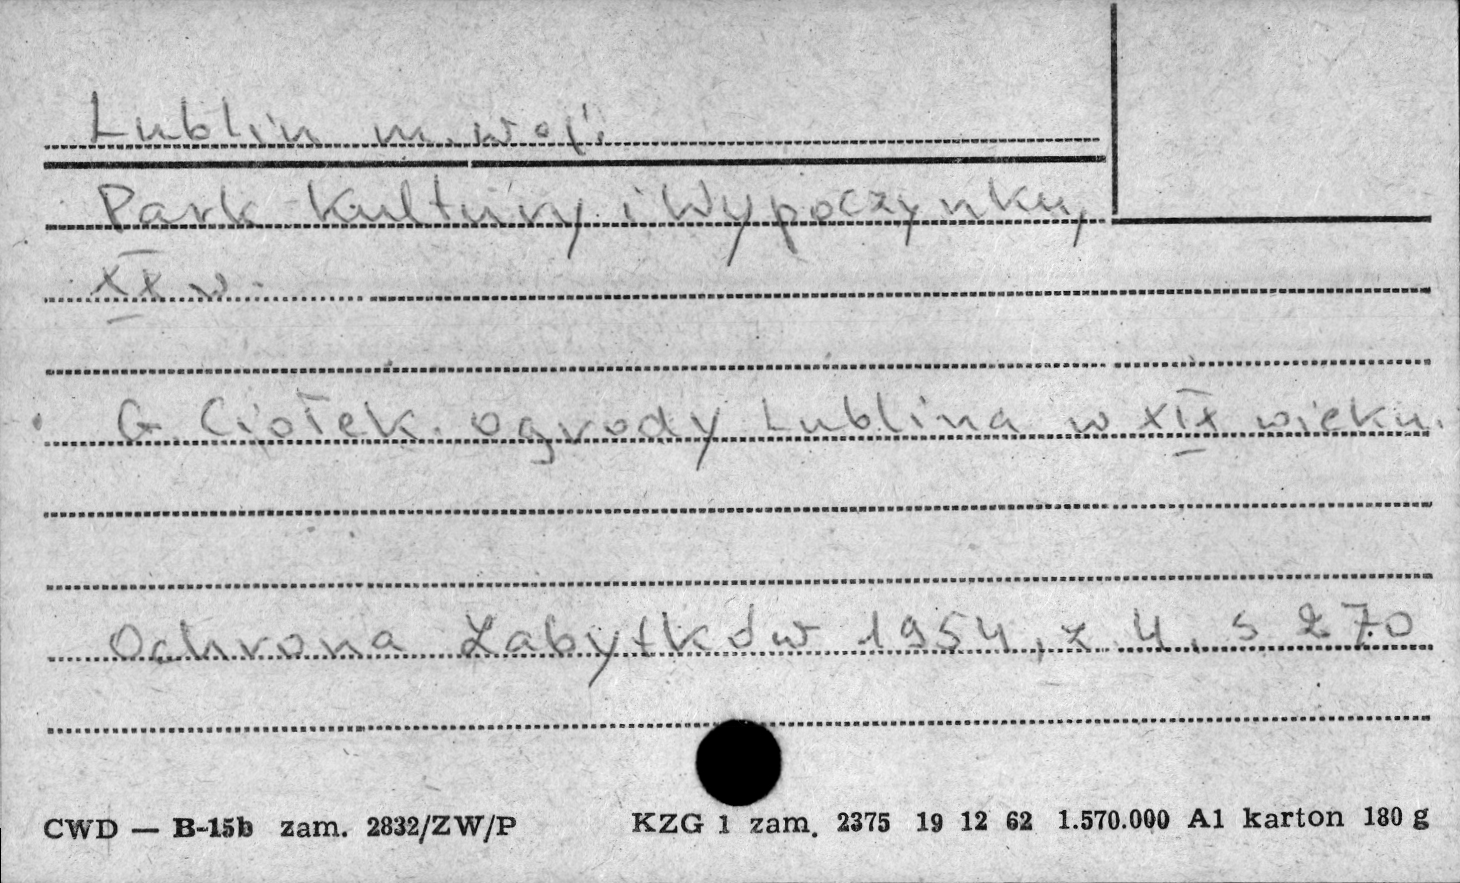 Lublin m. woj.
Park Kultury i Wypoczynku,
XX w.
G. Ciołek. Ogrody Lublina w XIX wieku.
Ochrona Zabytków 1954, z. 4, s 270
CWD — B-15b zam. 2832/ZW/P KZG 1 zam. 2375 19 12 62 1.570.000 A1 karton 180 g